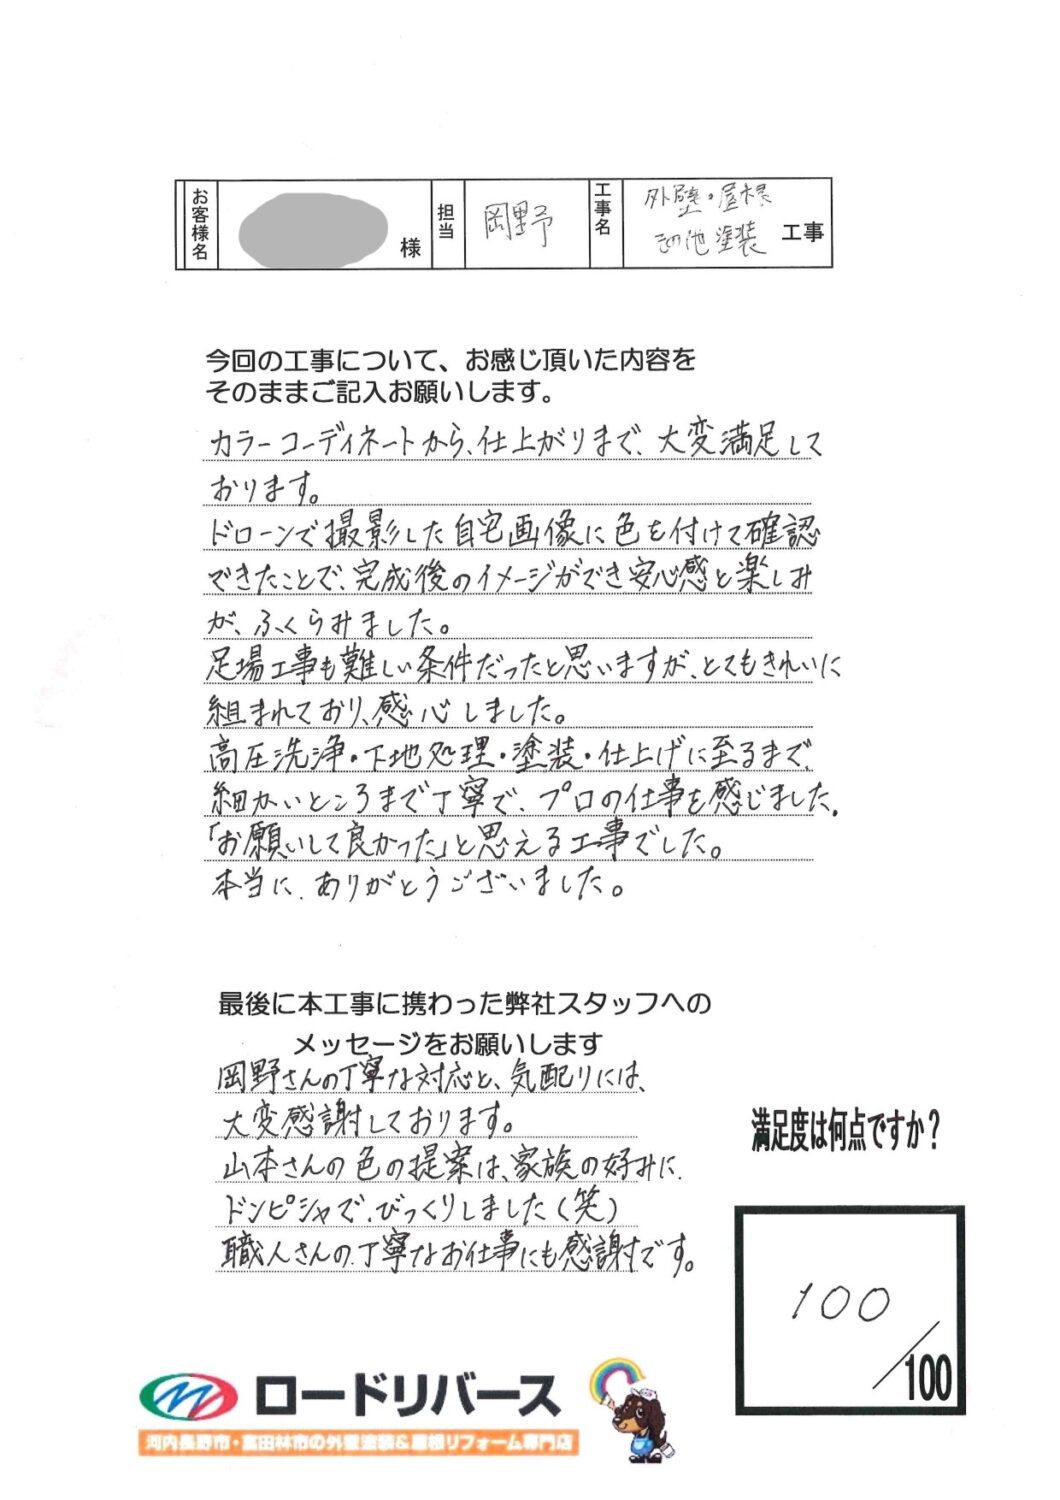 お客様名
様
担当
岡野
工事名
外壁・屋根
その他塗装
工事
今回の工事について、お感じ頂いた内容を
そのままご記入お願いします。
カラーコーディネートから、仕上がりまで、大変満足して
おります。
ドローンで撮影した自宅画像に色を付けて確認
できたことで、完成後のイメージができ安心感と楽しみ
が、ふくらみました。
足場工事も難しい条件だったと思いますが、とてもきれいに
組まれており、感心しました。
高圧洗浄・下地処理・塗装・仕上げに至るまで、
細かいところまで丁寧で、プロの仕事を感じました。
「お願いして良かった」と思える工事でした。
本当に、ありがとうございました。
最後に本工事に携わった弊社スタッフへの
メッセージをお願いします
岡野さんの丁寧な対応と、気配りには、
大変感謝しております。
山本さんの色の提案は、家族の好みに
ドンピシャで、びっくりしました(笑)
職人さんの丁寧なお仕事にも感謝です。
満足度は何点ですか?
100
/100
ロードリバース
河内長野市・富田林市の外壁塗装&屋根リフォーム専門店